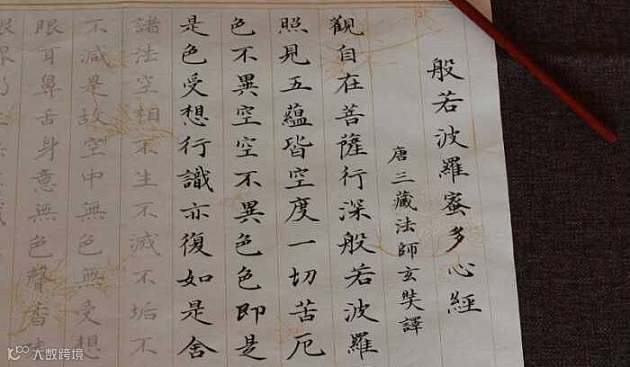 般若波羅蜜多心經
唐三藏法師玄奘譯
觀自在菩薩行深般若波羅
照見五蘊皆空度一切苦厄
色不異空空不異色色即是
是色受想行識亦復如是舍
諸法空相不生不滅不垢不
不減是故空中無色無受想
眼耳鼻舌身意無色聲香
大数跨境